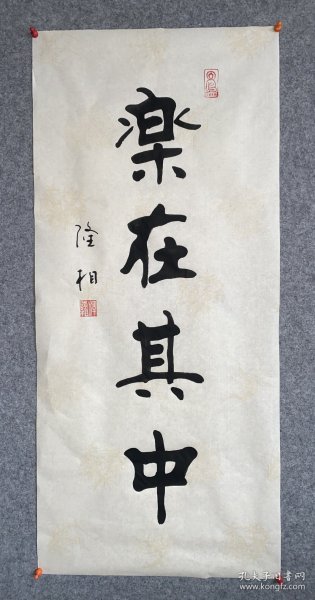 楽在其中
隆相
孔夫子旧书网
www.kongfz.com